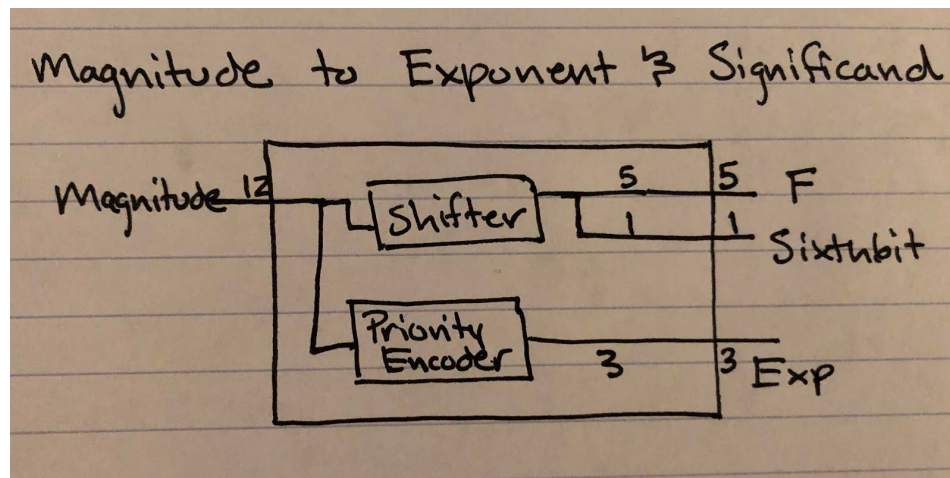 Magnitude to Exponent & Significand
Magnitude 12
Shifter
5
5 F
1
1 Sixthbit
Priority
Encoder
3
3 Exp